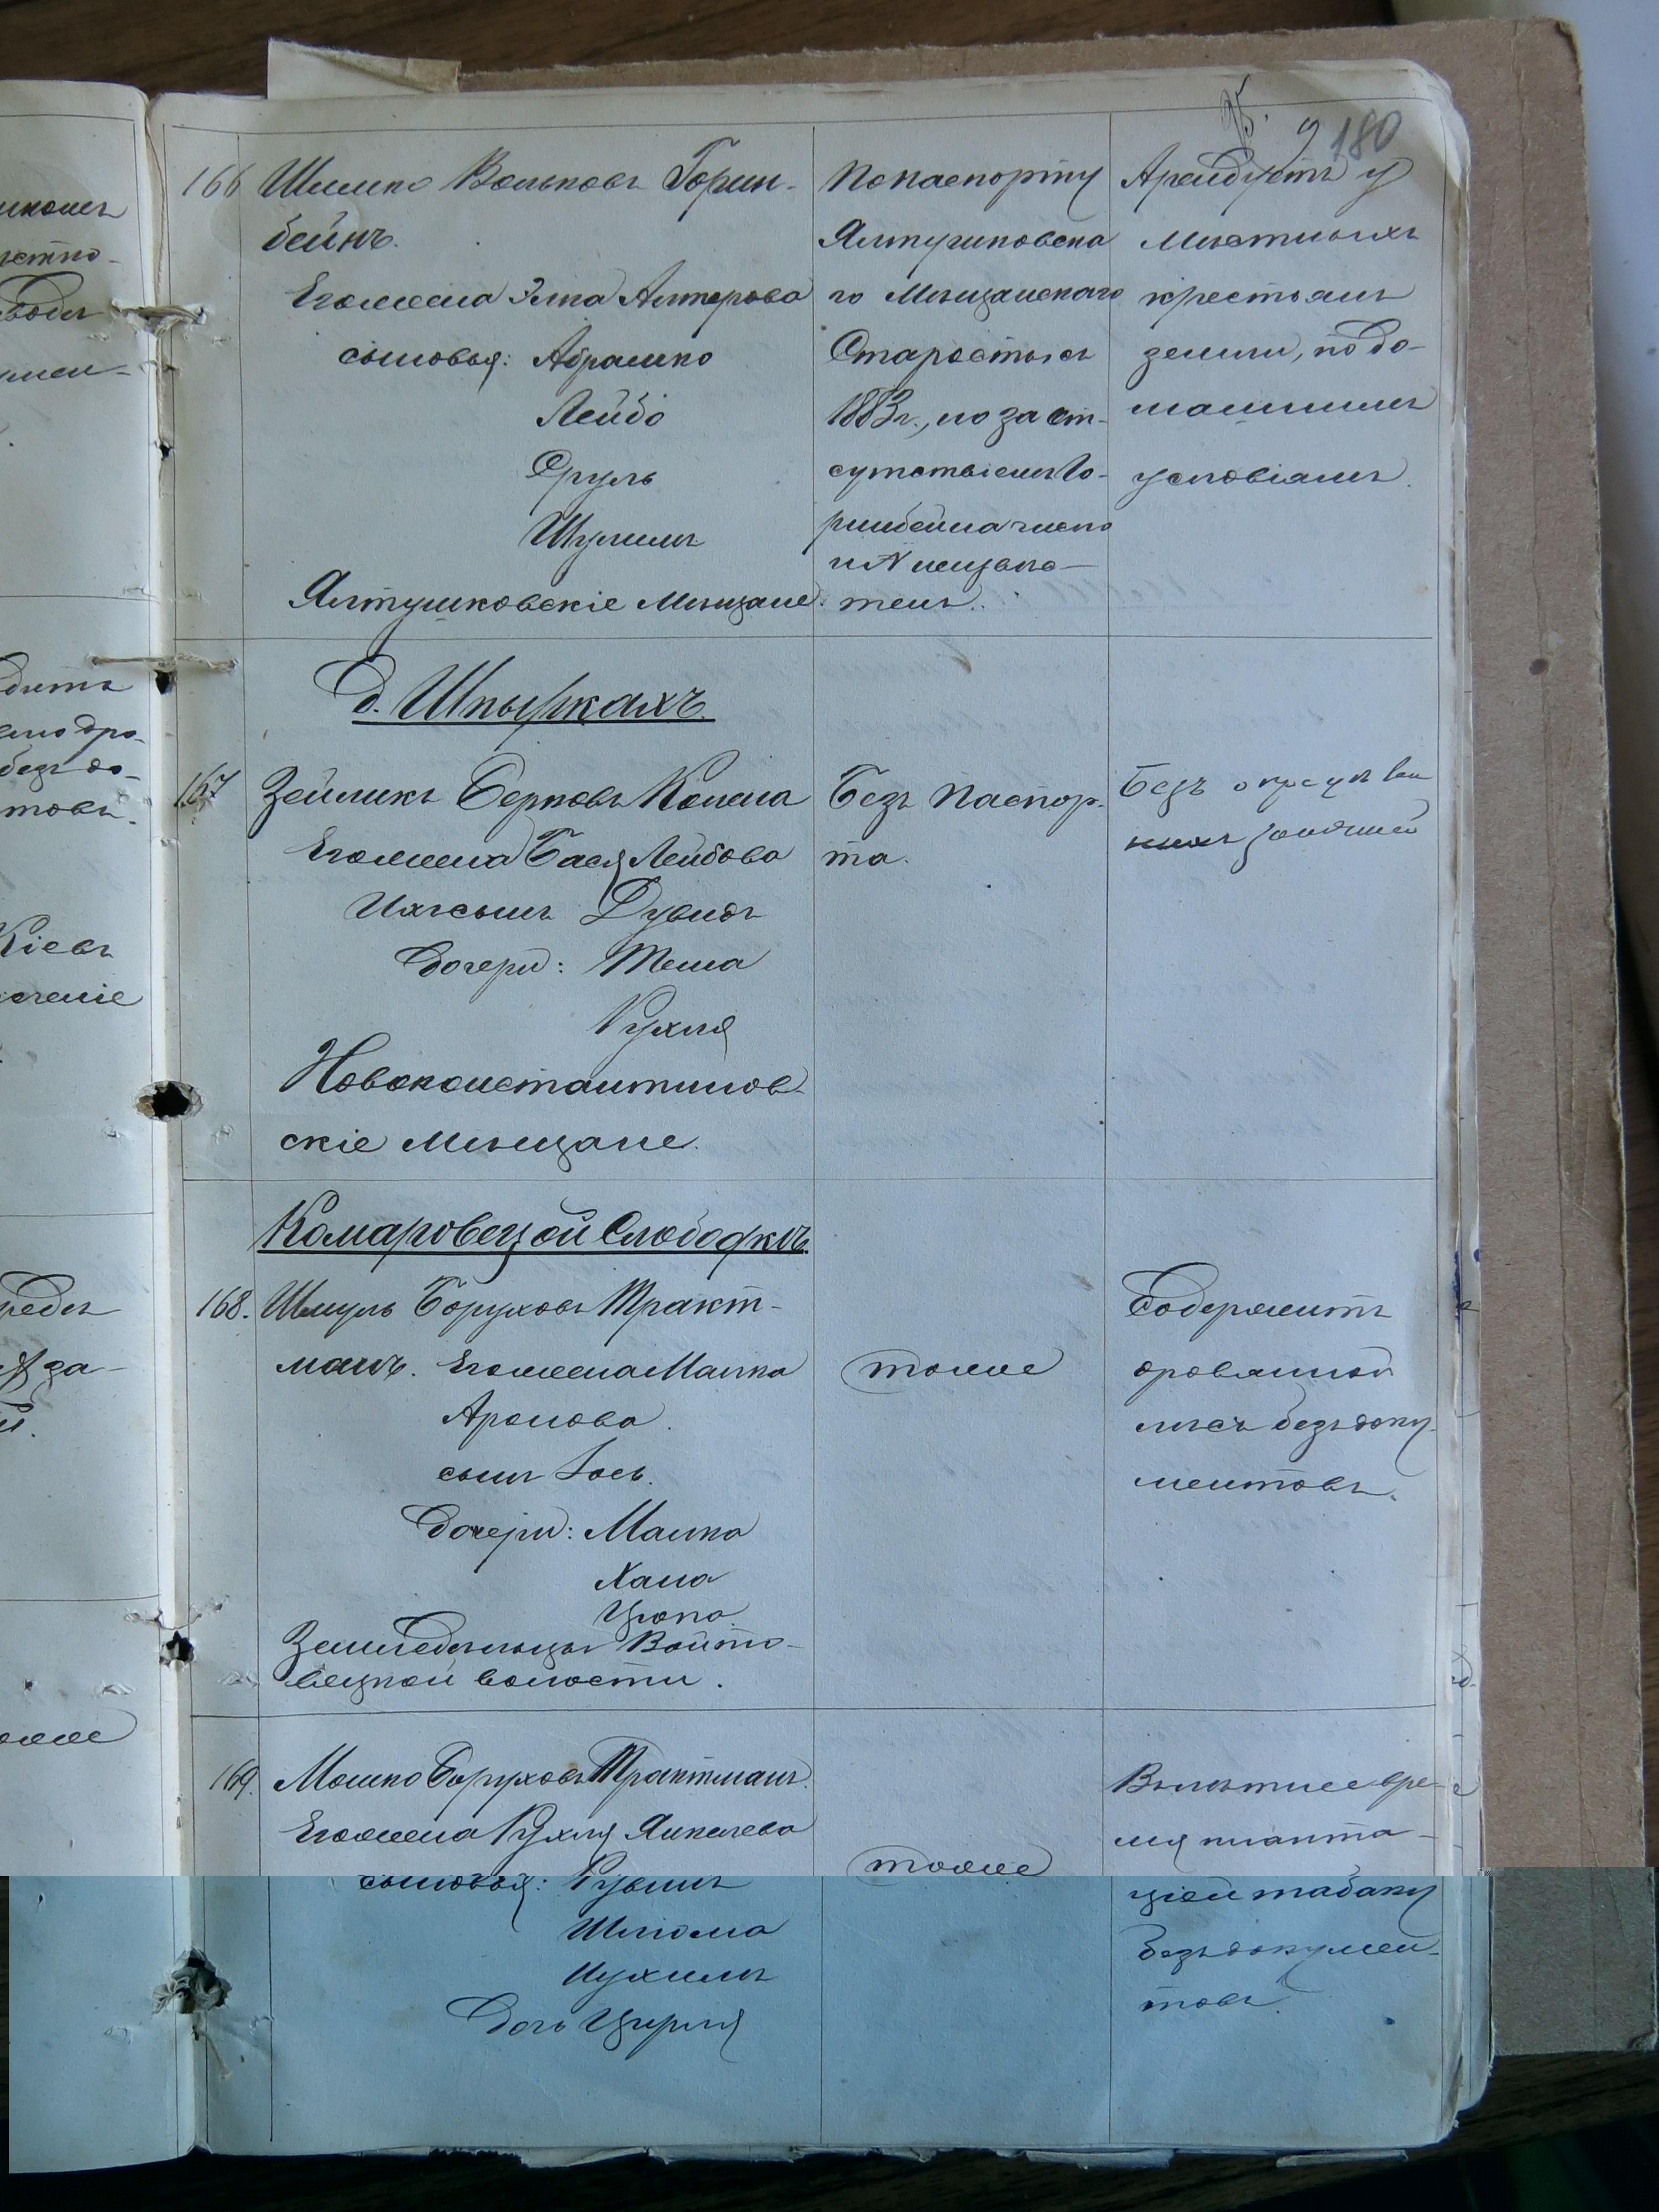 95.
180
166 Шимко Вольковъ Горин-
бейнъ.
Его жена Элка Алтерова
сыновья: Абрамко
Лейбо
Сруль
Шулимъ
Ялтушковскіе Мѣщане.
По паспорту
Ялтушковска
го Мѣщанскаго
Старосты съ
1883 г., но за от-
сутствіемъ Го-
ринбейна число
и № неизвѣс-
тенъ.
Арендуетъ у
Мѣстныхъ
крестьянъ
земли, по до-
машнимъ
условіямъ.
д. Шпыркахъ.
167 Зейликъ Берковъ Колена
Его жена Бася Лейбова
Ихъ сынъ Дувидъ
Дочери: Тема
Рухля
Новоконстантинов-
скіе мѣщане.
Безъ Паспор-
та.
Безъ
занятій
Комаровецкой Слободкѣ.
168. Шмуль Боруховъ Тракт-
манъ. Его жена Малка
Аронова.
сынъ Іось.
Дочери: Малка
Хана
Цюпа.
Земледѣльцы Войто-
вецкой волости.
тоже
Содержитъ
дровянной
лѣсъ безъ доку-
ментовъ.
169. Мошко Боруховъ Трактманъ.
Его жена Рухля Янкелева
сыновья: Рувинъ
Шліома
Нухимъ
Дочь Цирля
тоже
Въ лѣтнее вре-
мя планта-
ціей табаку
безъ докумен-
товъ.